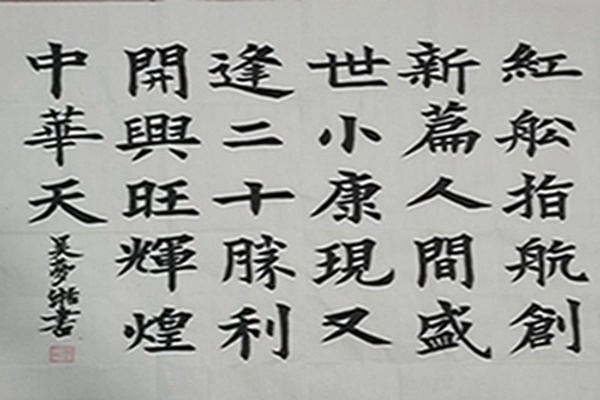 紅舩指航創
新篇人間盛
世小康現又
逢二十勝利
開興旺輝煌
中華天